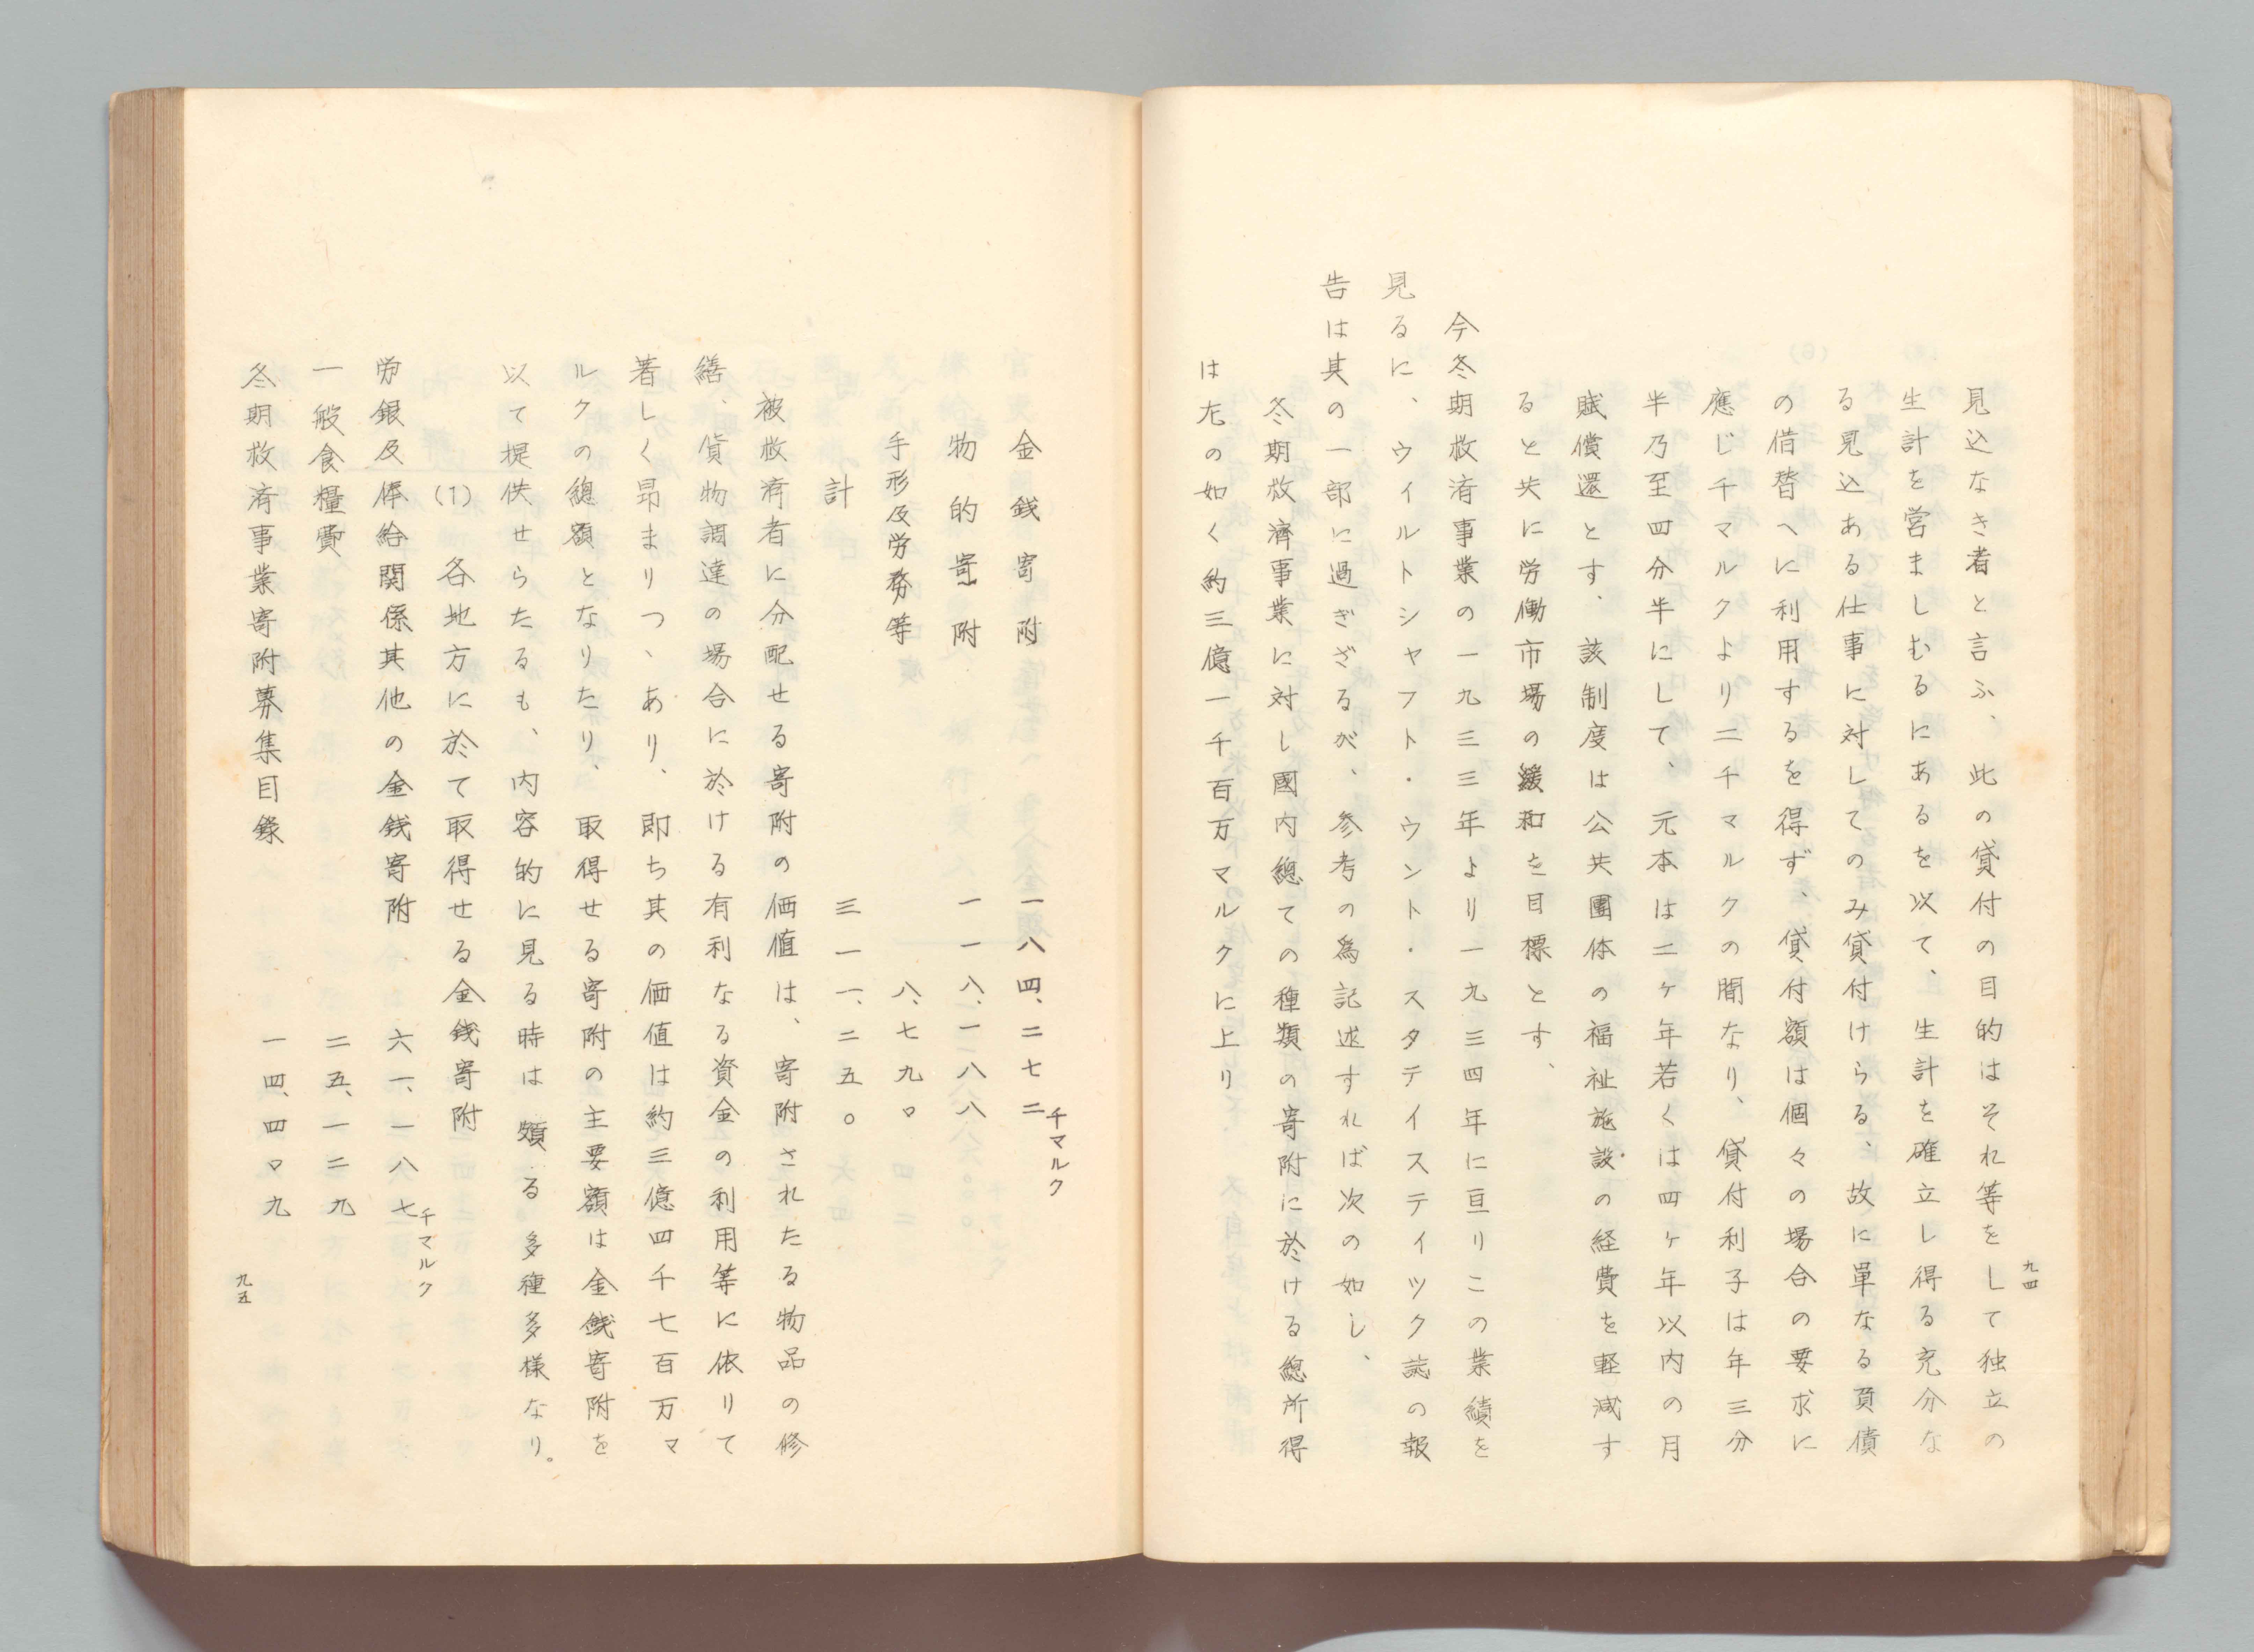 九四
見込なき者と言ふ、此の貸付の目的はそれ等をして独立の
生計を営ましむるにあるを以て、生計を確立し得る充分な
る見込ある仕事に対してのみ貸付けらる、故に単なる負債
の借替へに利用するを得ず、貸付額は個々の場合の要求に
應じ千マルクより二千マルクの間なり、貸付利子は年三分
半乃至四分半にして、元本は二ヶ年若くは四ヶ年以内の月
賦償還とす、該制度は公共團体の福祉施設の経費を軽減す
ると共に労働市場の緩和を目標とす、
今冬期救済事業の一九三三年より一九三四年に亘りこの業績を
見るに、ウイルトシヤフト・ウント・スタテイステイツク誌の報
告は其の一部に過ぎざるが、参考の為記述すれば次の如し、
冬期救濟事業に対し國内總ての種類の寄附に於ける總所得
は左の如く約三億一千百万マルクに上り
千マルク
金銭寄附 一八四、二七二
物的寄附 一一八、一八八
手形及労務等 八、七九〇
計 三一一、二五〇
被救済者に分配せる寄附の価値は、寄附されたる物品の修
繕、貨物調達の場合に於ける有利なる資金の利用等に依りて
著しく昂まりつゝあり、即ち其の価値は約三億四千七百万マ
ルクの總額となりたり、取得せる寄附の主要額は金銭寄附を
以て提供せらたるも、内容的に見る時は頗る多種多様なり。
(1) 各地方に於て取得せる金銭寄附
千マルク
労銀及俸給関係其他の金銭寄附 六一、一八七
一般食糧費 二五、一二九
冬期救済事業寄附募集目錄 一四、四〇九
九五